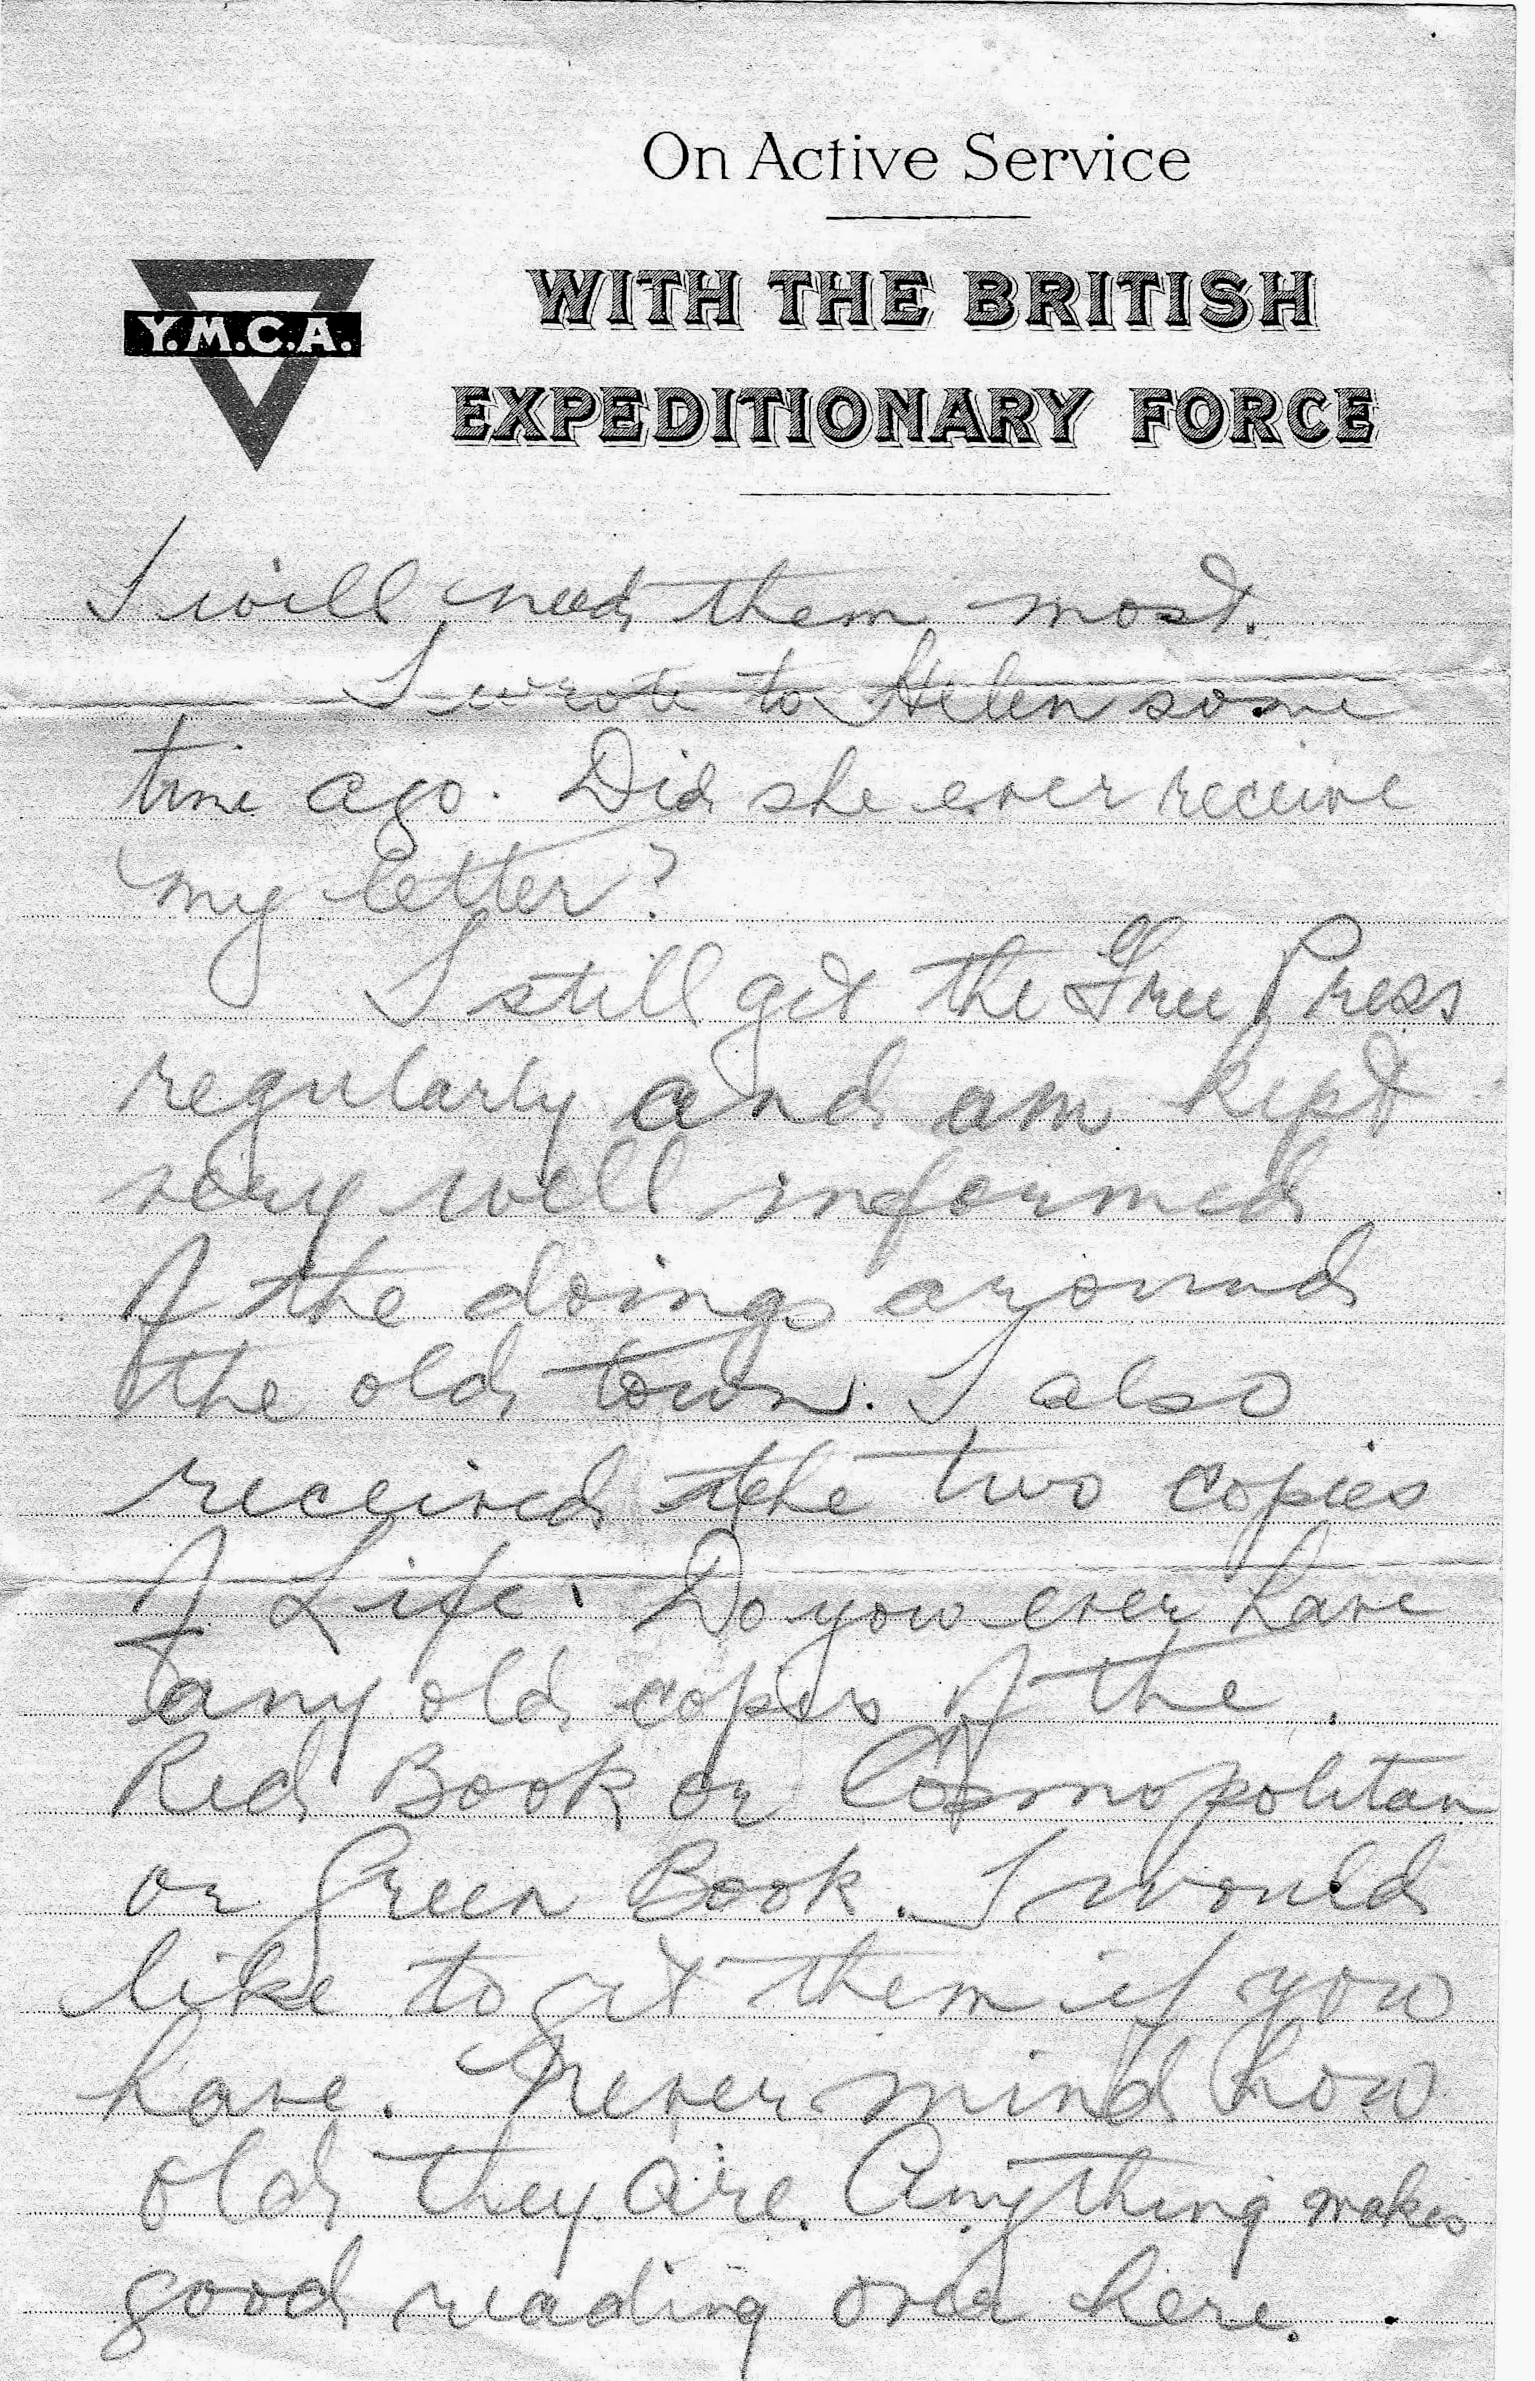 On Active Service
WITH THE BRITISH
Y.M.C.A.
EXPEDITIONARY FORCE
I will need them most.
I wrote to Helen some
time ago. Did she ever receive
my letter?
I still get the Free Press
regularly and am kept
very well informed
of the doings around
the old town. I also
received the two copies
of Life. Do you ever have
any old copies of the
Red Book or Cosmopolitan
or Green Book. I would
like to get them if you
have. Never mind how
old they are. Anything makes
good reading over here.